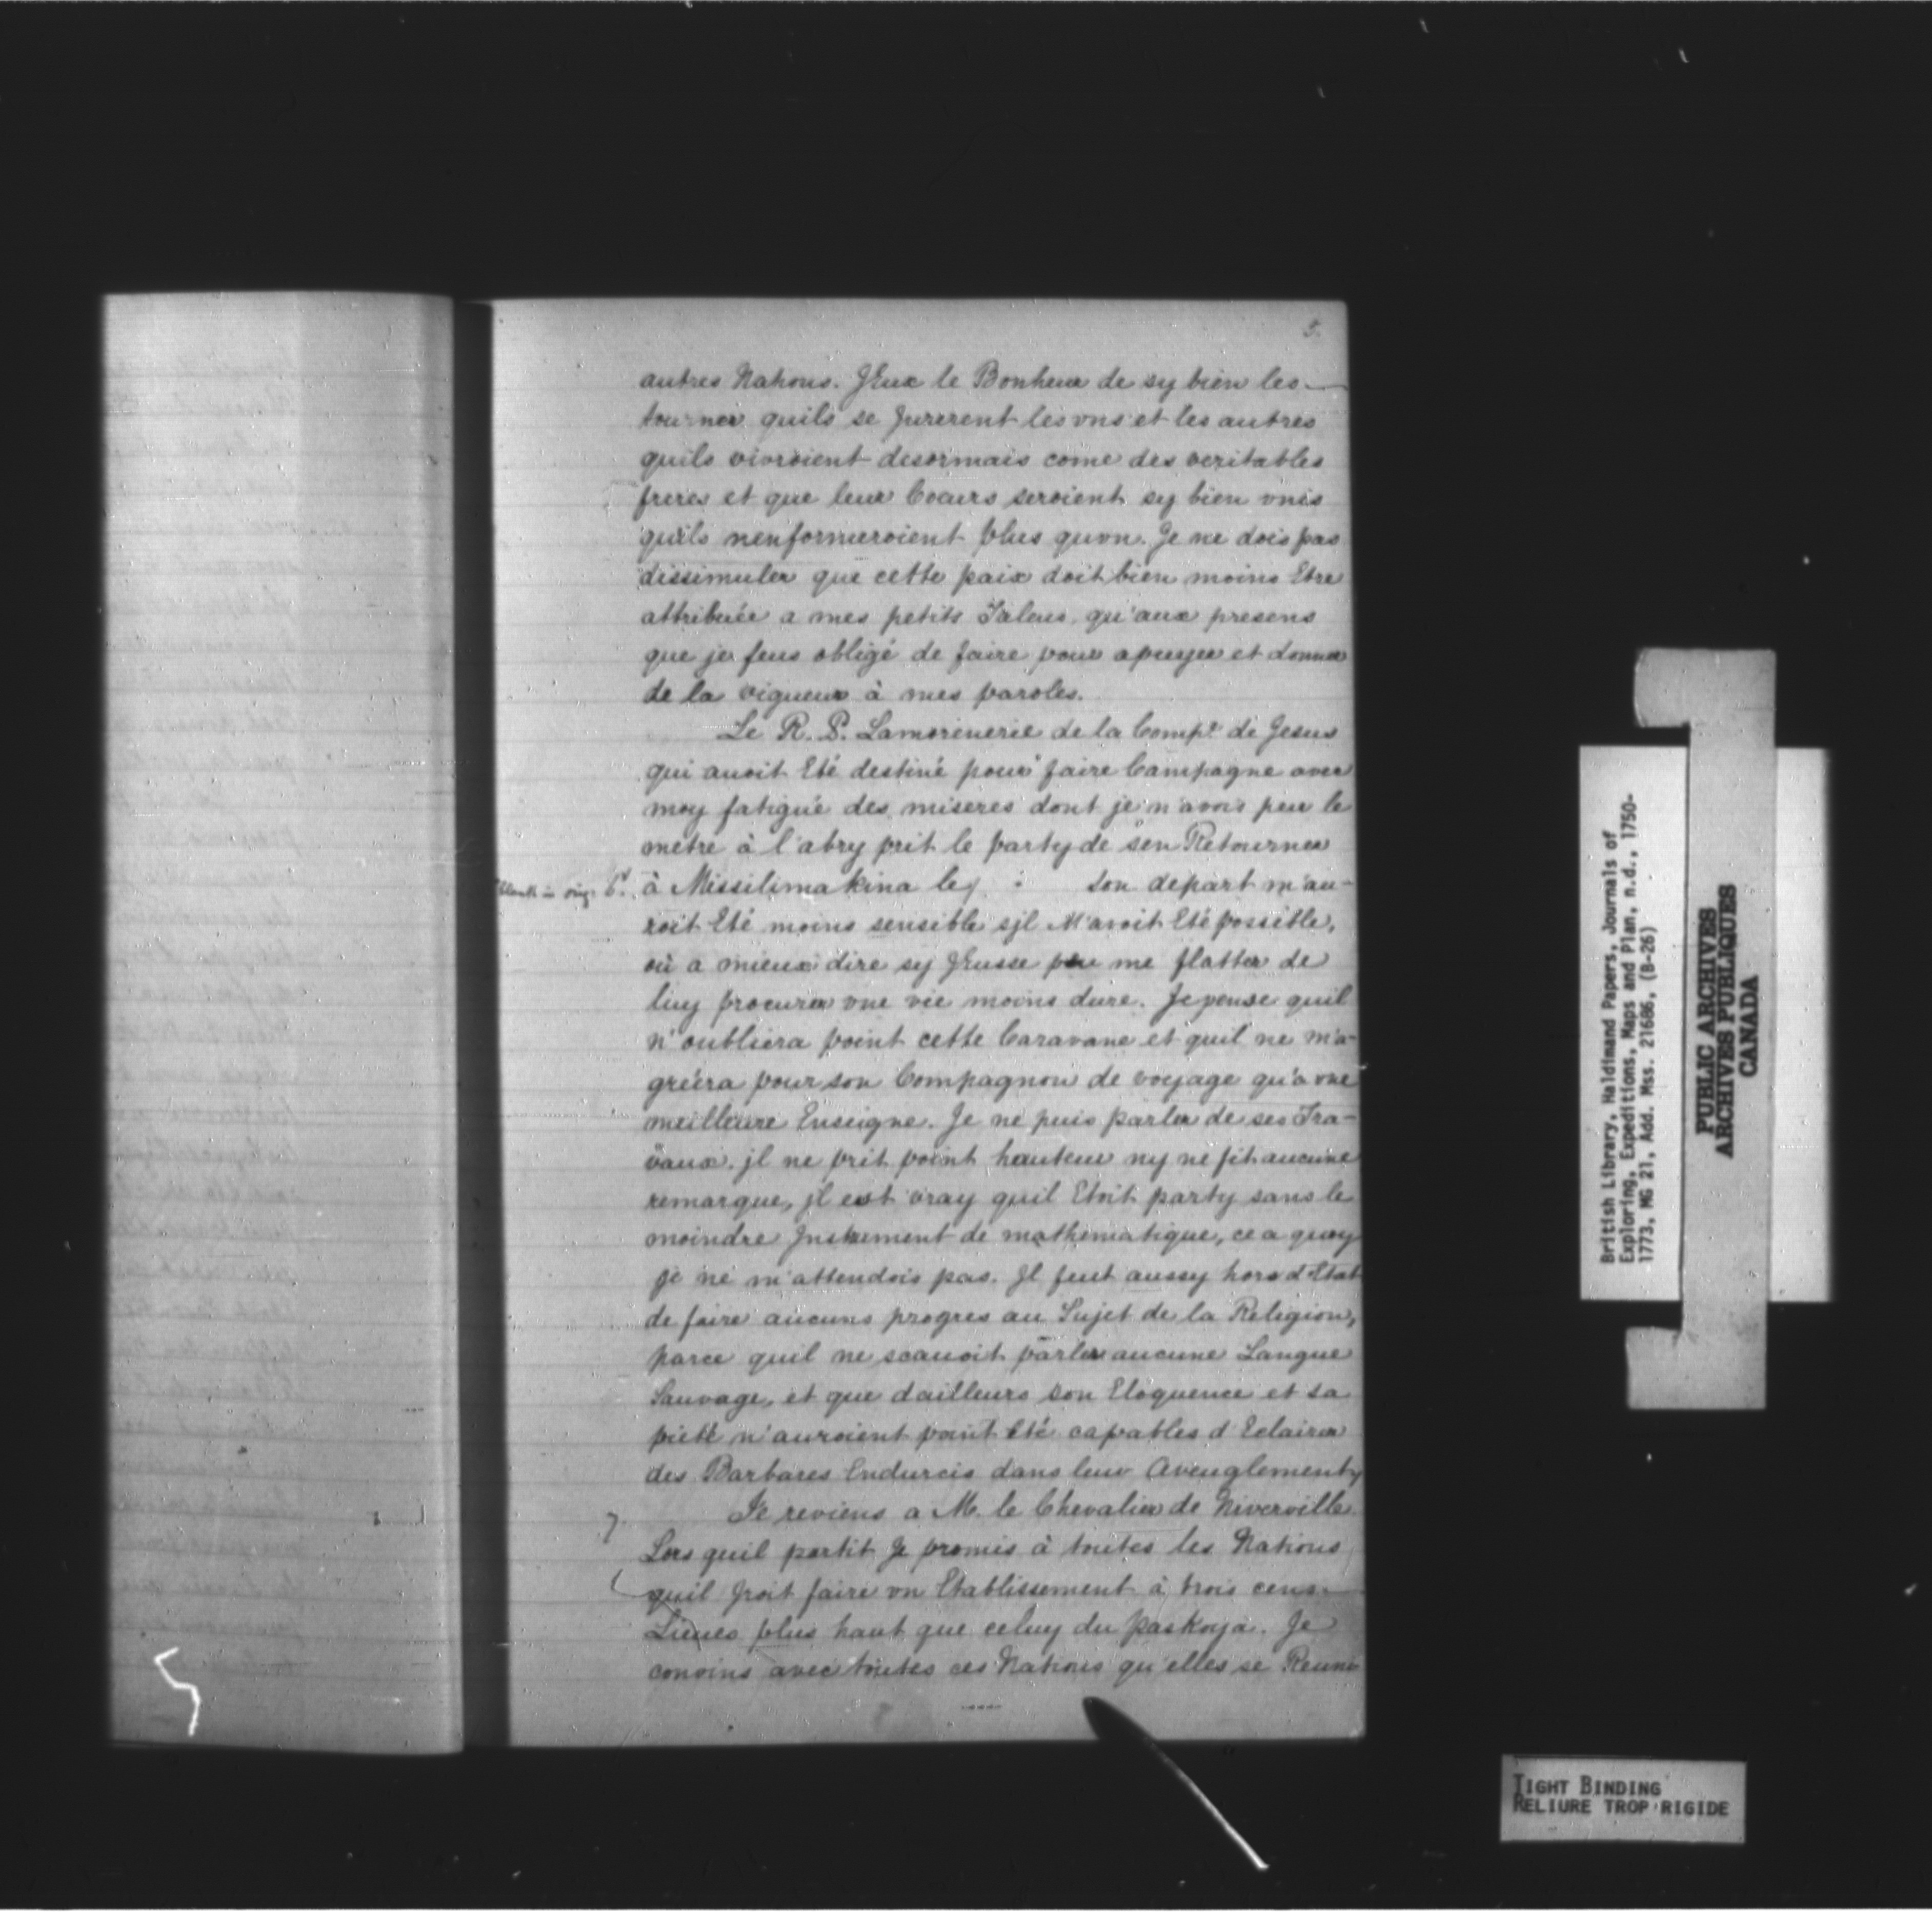 5.
autres Nations. JEux le Bonheur de sy bien les
tourner quils se Jurerent les vns et les autres
quils vivroient desormais come des veritables
freres et que leur Coeurs seroient sy bien vnis
quils nenformeroient plus quvn. Je ne dois pas
dissimuler que cette paix doit bien moins Etre
attribuée a mes petits Talens, qu'aux presens
que je feus obligé de faire pour apuyer et donner
de la vigueur à mes paroles.
Le R. P. Lamorenerie de la Compe de Jesus
qui auoit Eté destiné pour faire Campagne avec
moy fatigué des miseres dont je n'avois peu le
metre à l'abry prit le party de sen Retourner
6. à Missilimakina le son depart m'au-
roit Eté moins sensible sjl M'avoit Eté possible,
où a mieux dire sy JEusse peu me flatter de
luy procurer vne vie moins dure. Je pense quil
n'oubliera point cette Caravane et quil ne m'a-
gréera pour son Compagnon de voyage qu'a vne
meilleure Enseigne. Je ne puis parler de ses Tra-
vaux. jl ne prit point hauteur ny ne fit aucune
remarque, jl est vray quil Etoit party sans le
moindre Instrument de mathematique, ce a quoy
je ne m'attendois pas. Il feut aussy hors d'Etat
de faire aucuns progres au Sujet de la Religion,
parce quil ne scauoit parler aucune Langue
Sauvage, et que dailleurs son Eloquence et sa
pieté n'auroient point Eté capables d'Eclairer
des Barbares Endurcis dans leur Aveuglement
7. Je reviens a M. le Chevalier de Niverville
Lors quil partit Je promis à toutes les Nations
quil Jroit faire vn Etablissement à trois cens
Lieues plus haut que celuy du Paskoya. Je
convins avec toutes ces Nations qu'elles se Reuni
British Library, Haldimand Papers, Journals of
Exploring, Expeditions, Maps and Plan, n.d., 1750-
1773, MG 21, Add. Mss. 21686, (B-26)
PUBLIC ARCHIVES
ARCHIVES PUBLIQUES
CANADA
TIGHT BINDING
RELIURE TROP RIGIDE